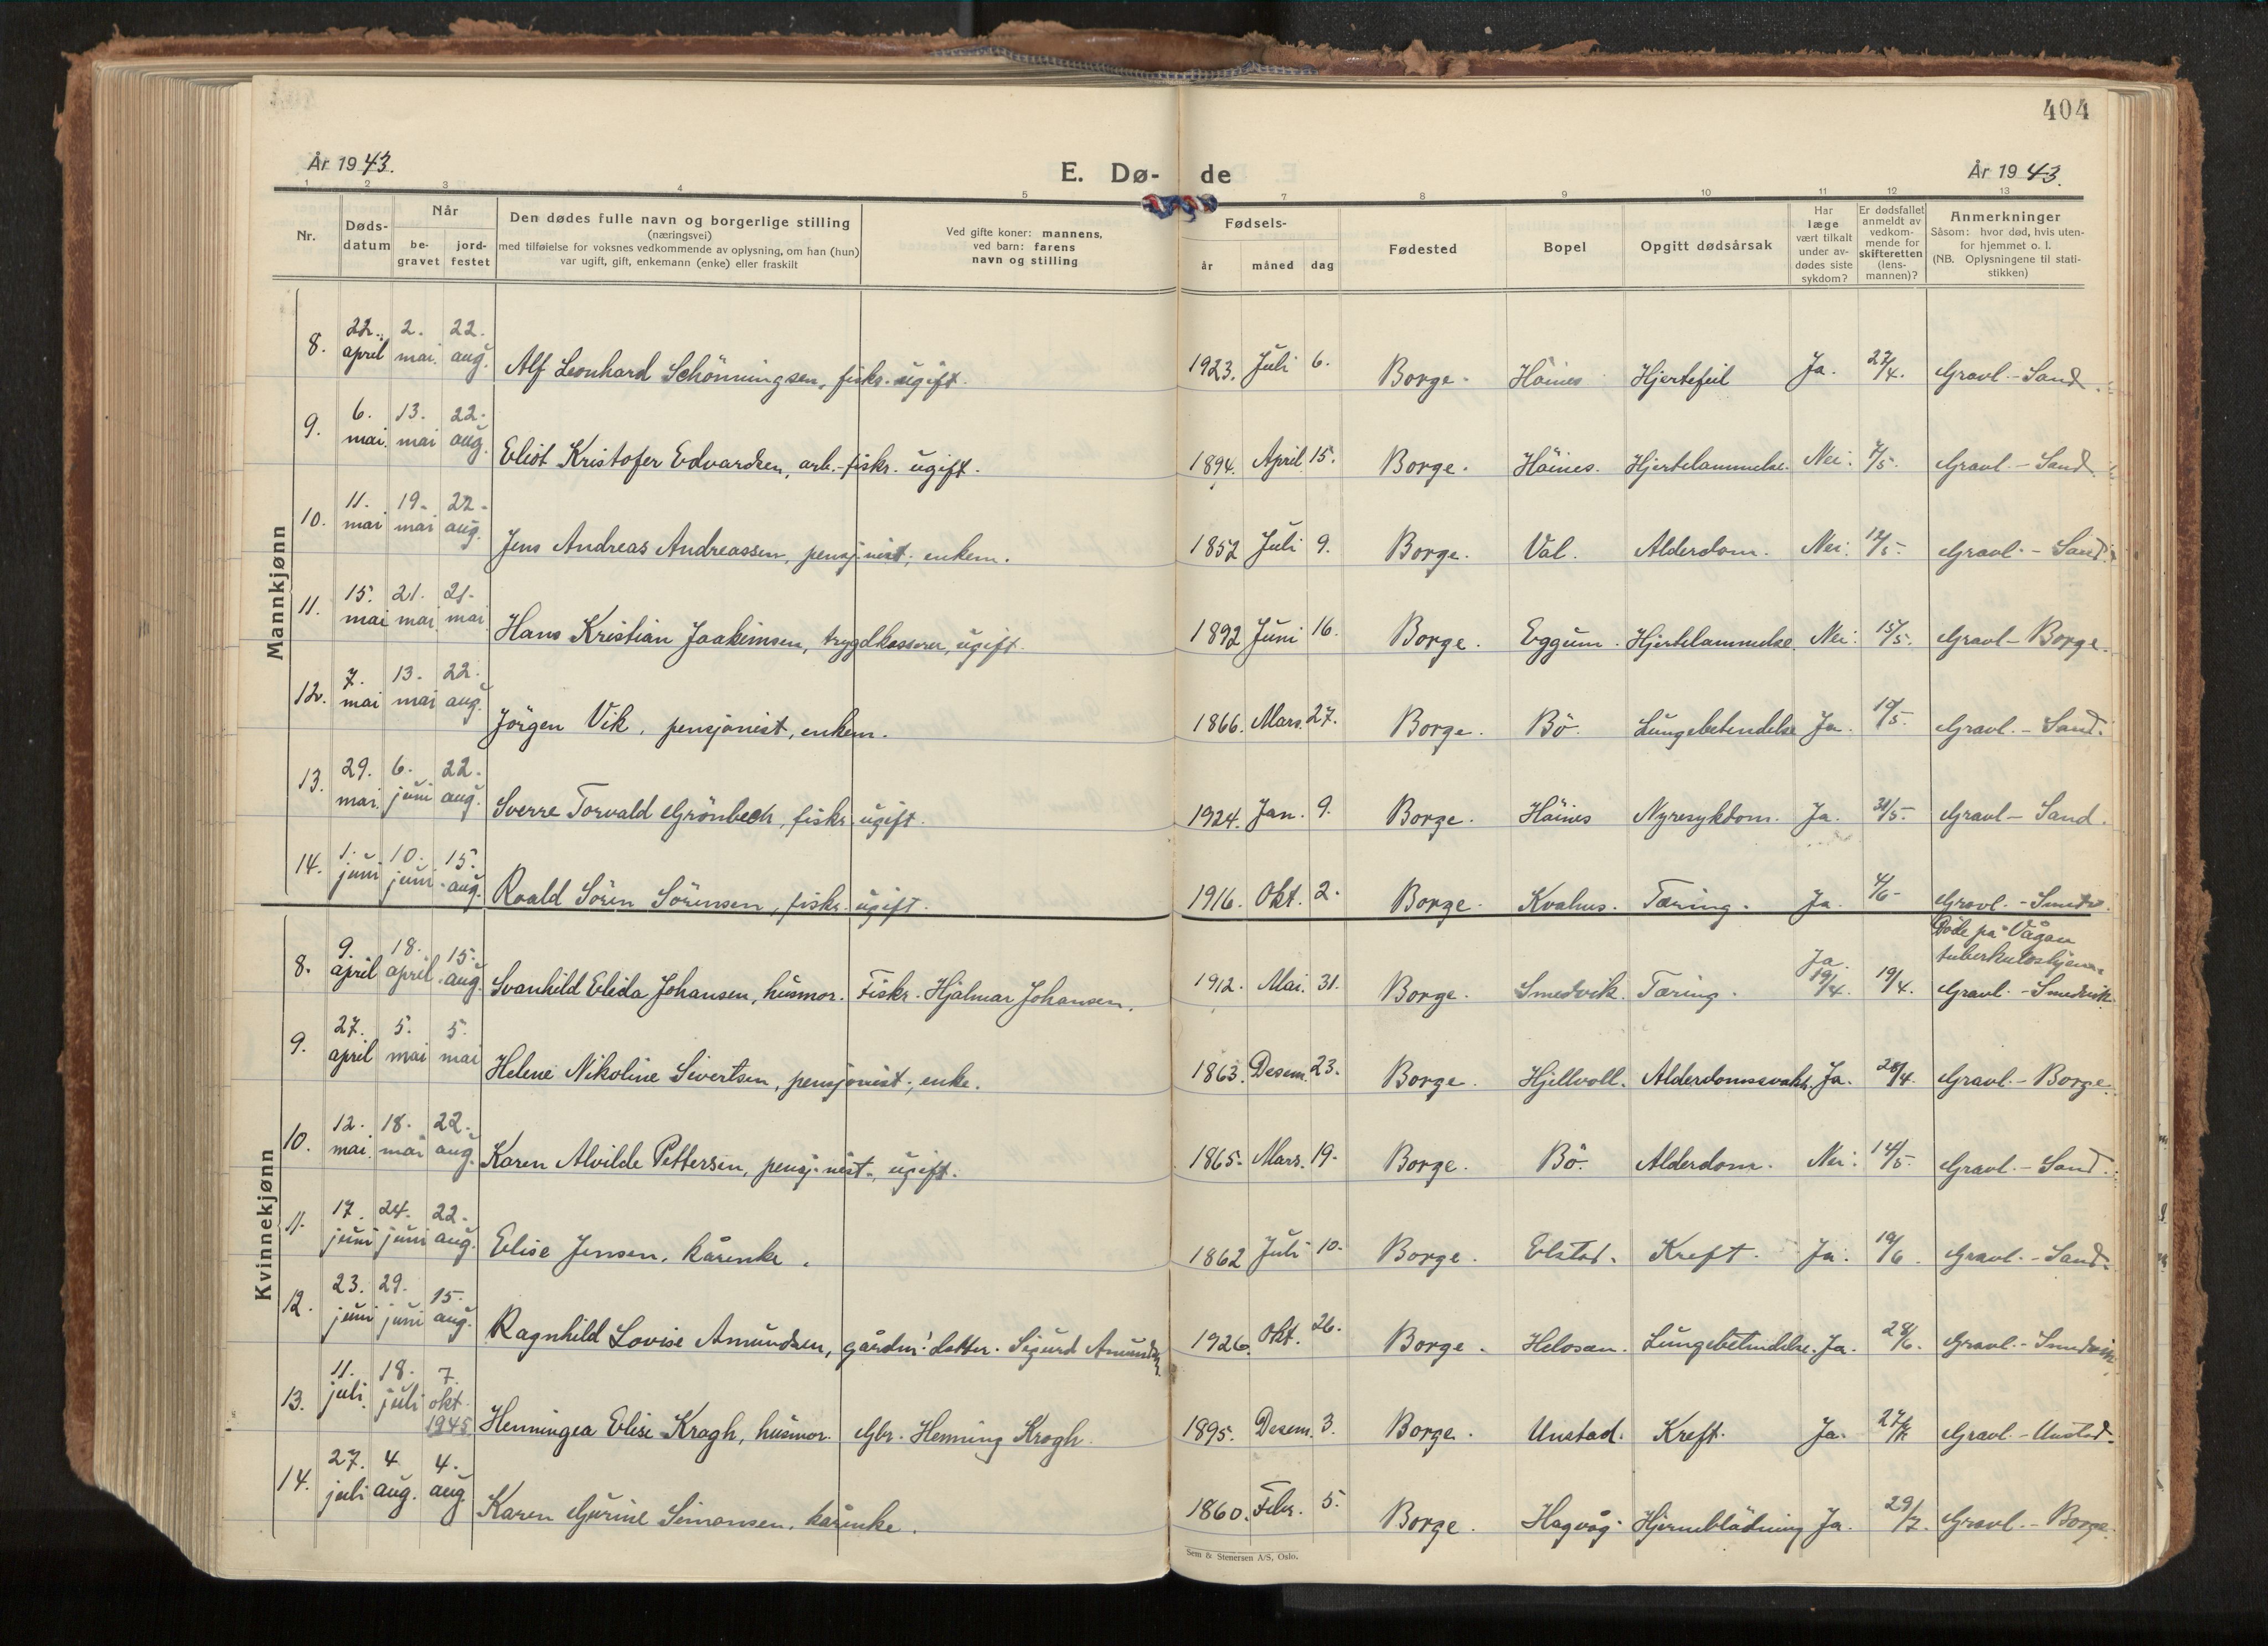 404
År 1943. E. Dø- de År 1943.
1 2 3 4 5 7 8 9 10 11 12 13
Nr. Dødsdatum Når begravet jordfestet
Den dødes fulle navn og borgerlige stilling
(næringsvei)
med tilføielse for voksnes vedkommende av oplysning, om han (hun)
var ugift, gift, enkemann (enke) eller fraskilt
Ved gifte koner: mannens,
ved barn: farens
navn og stilling
Fødsels- år måned dag
Fødested
Bopel
Opgitt dødsårsak
Har læge vært tilkalt under avdødes siste sykdom?
Er dødsfallet anmeldt av vedkommende for skifteretten (lensmannen)?
Anmerkninger
Såsom: hvor død, hvis utenfor hjemmet o. l.
(NB. Oplysningene til statistikken)
Mannkjønn
8. 22. april 2. mai. 22. aug. Alf Leonhard Schönningsen, fiskr. ugift. 1923. Juli 6. Borge. Höines Hjertefeil Ja. 27/4. Gravl. - Sand.
9. 6. mai. 13. mai 22. aug. Eliot Kristofer Edvardsen, arb.-fiskr. ugift. 1894. April 15. Borge. Höines. Hjertelammelse. Nei. 7/5. Gravl. - Sand.
10. 11. mai 19. mai 22. aug. Jens Andreas Andreassen, pensjonist, enkem. 1852 Juli 9. Borge. Val. Alderdom. Nei. 12/5. Gravl. - Sand.
11. 15. mai 21. mai 21. mai Hans Kristian Joakimsen, trygdkasserer, ugift. 1892 Juni 16. Borge. Eggum. Hjertelammelse. Nei. 15/5. Gravl - Borge.
12. 7. mai 13. mai 22. aug. Jörgen Vik, pensjonist, enkem. 1866. Mars. 27. Borge. Bö. Lungebetendelse Ja. 19/5. Gravl. - Sand.
13. 29. mai. 6. juni 22. aug. Sverre Torvald Grönbech, fiskr. ugift. 1924. Jan. 9. Borge. Höines Nyresykdom. Ja. 31/5. Gravl - Sand.
14. 1. juni 10. juni 15. aug. Roald Sören Sörensen, fiskr. ugift. 1916. Okt. 2. Borge. Kvalnes. Tæring. Ja. 4/6. Gravl. - Smedv.
Kvinnekjønn
Döde på Vågan
tuberkuloshjem.
8. 9. april 18. april 15. aug. Svanhild Elida Johansen, husmor. Fiskr. Hjalmar Johansen. 1912. Mai. 31. Borge. Smedvik. Tæring. Ja. 19/4. 19/4. Gravl. - Smedvik.
9. 27. april 5. mai 5. mai Helene Nikoline Sivertsen, pensjonist, enke. 1863. Desem. 23. Borge. Hjellvoll. Alderdomssvakh. Ja. 28/4. Gravl. - Borge.
10. 12. mai. 18. mai 22. aug. Karen Alvilde Pettersen, pensj.nist., ugift. 1865. Mars. 19. Borge. Bö. Alderdom. Nei. 14/5. Gravl. - Sand.
11. 17. juni 24. juni 22. aug. Elise Jensen, kårenke. 1862 Juli 10. Borge. Elstad. Kreft. Ja. 19/6. Gravl. - Sand.
12. 23. juni 29. juni 15. aug. Ragnhild Lovise Amundsen, gårdm. datter. Sigurd Amundsen, 1926 Okt. 26. Borge. Helosan. Lungebetendelse. Ja. 28/6. Gravl. - Smedvik
13. 11. juli. 18. juli 7. okt. 1945 Henningea Elise Kragh, husmor. Gbr. Henning Krogh. 1895. Desem. 3. Borge. Unstad. Kreft. Ja. Gravl. - Unstad.
14. 27. juli 4 aug. 4. aug. Karen Gurine Simonsen, kårenke. 1860. Febr. 5. Borge. Hagvåg. Hjerneblödning Ja. 29/7. Gravl. - Borge.
Sem & Stenersen A/S, Oslo.